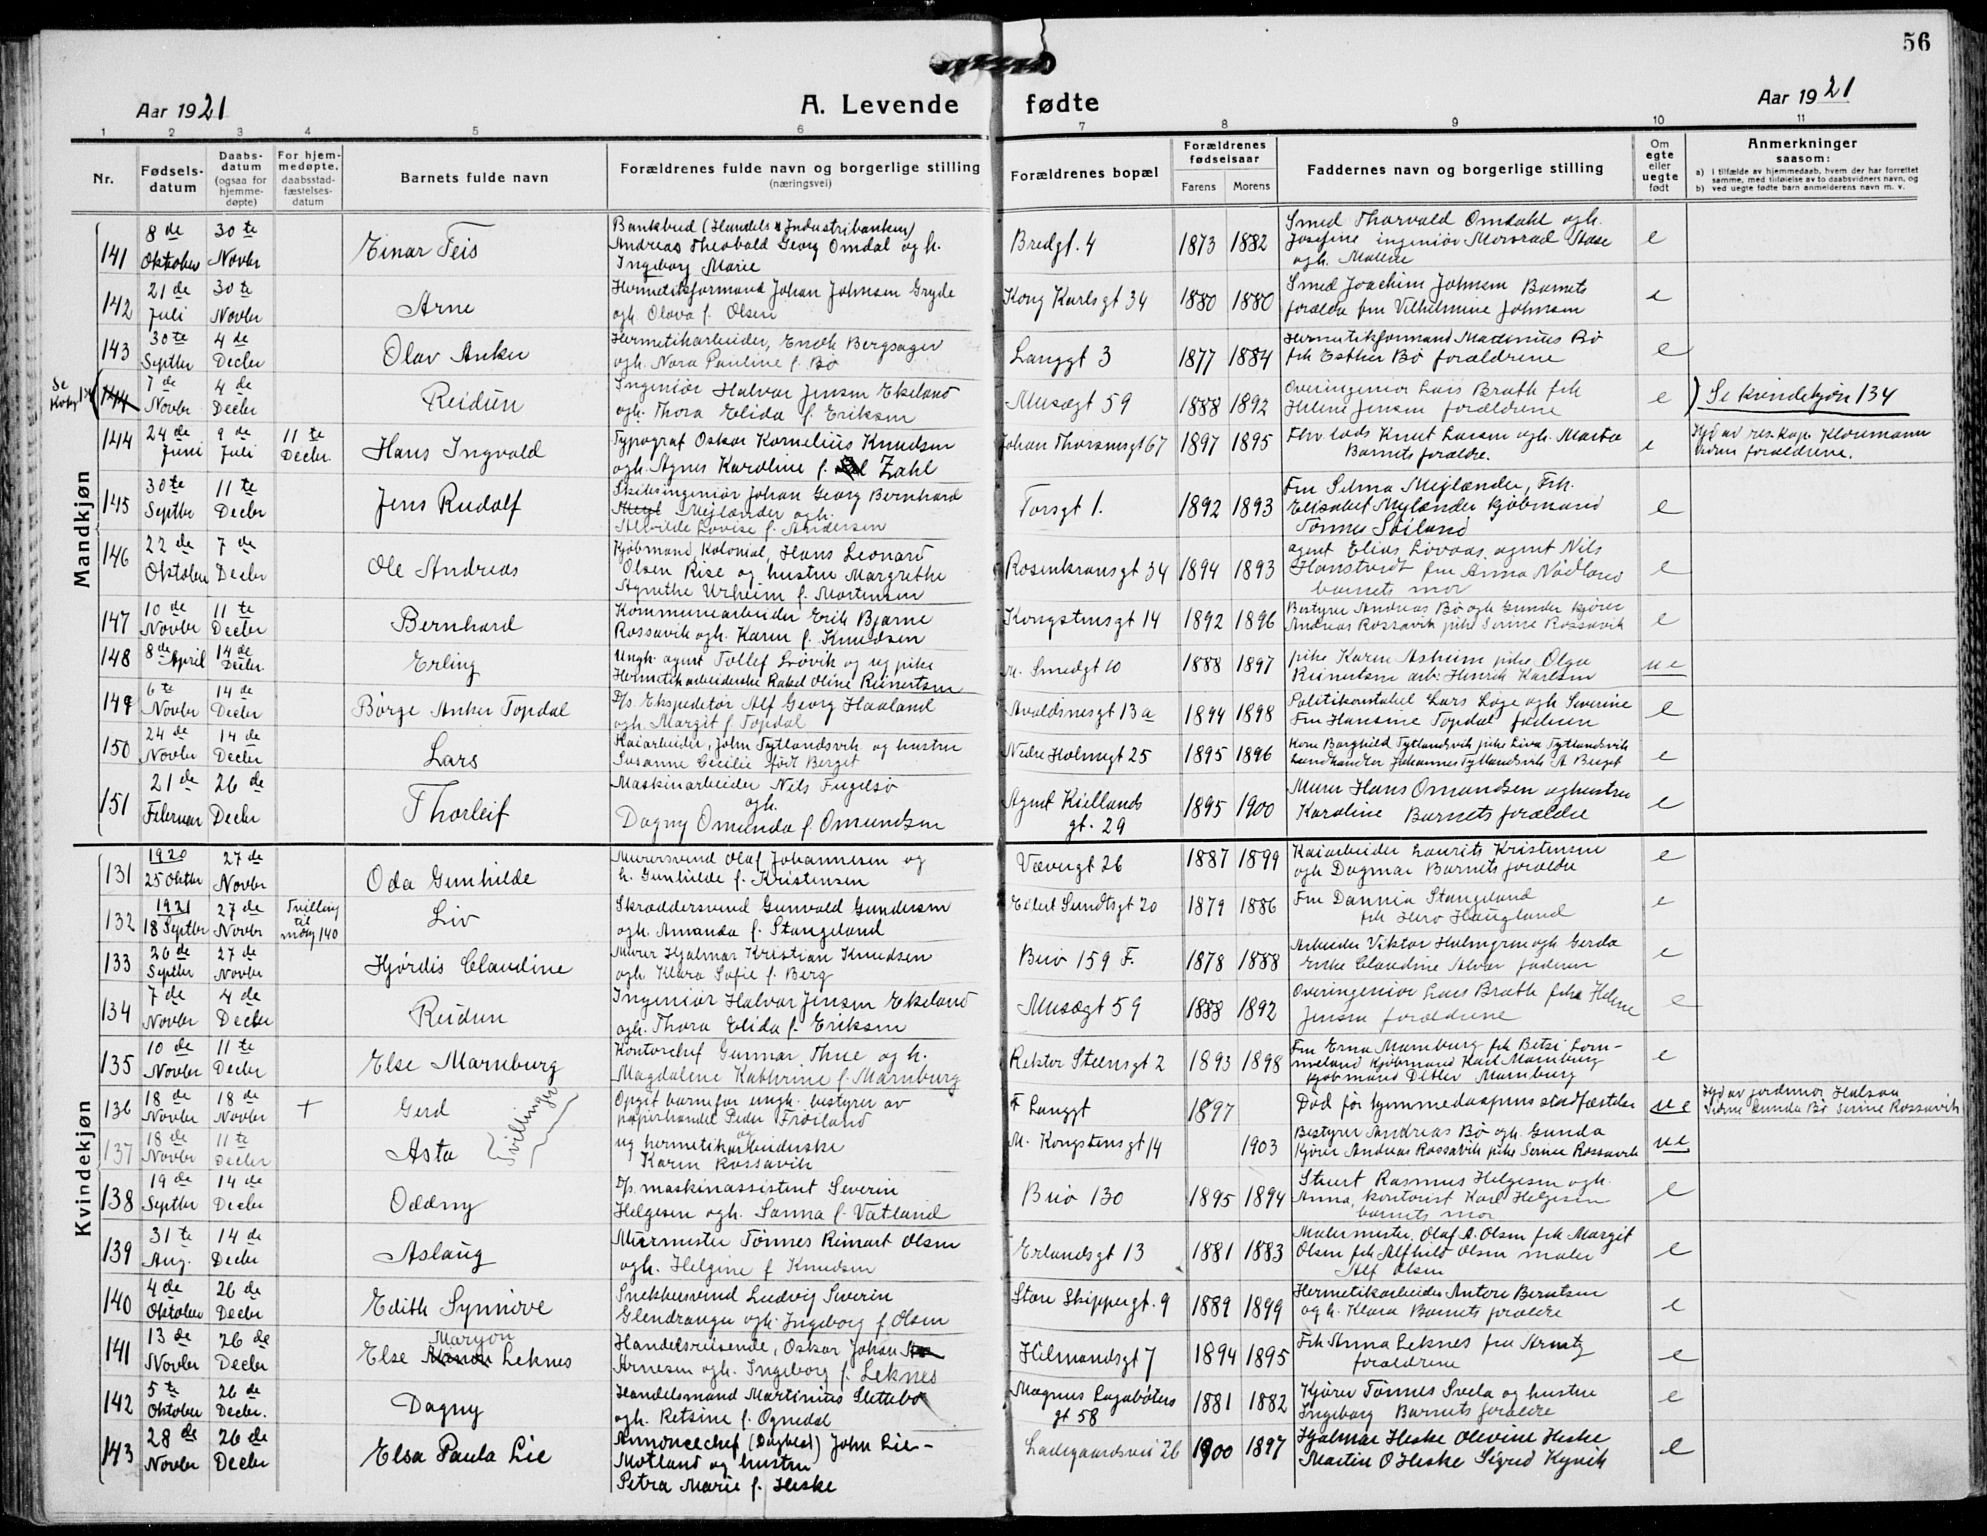 56
Aar 1921
A. Levende fødte
Aar 1921
1 2 3 4 5 6 7 8 9 10 11
Nr.
Fødsels-
datum
Daabs-
datum
(ogsaa for
hjemme-
døpte)
For hjem-
medøpte,
daabsstad-
fæstelses-
datum
Barnets fulde navn
Forældrenes fulde navn og borgerlige stilling
(næringsvei)
Forældrenes bopæl
Forældrenes
fødselsaar
Farens Morens
Faddernes navn og borgerlige stilling
Om
egte
eller
uegte
født
Anmerkninger
saasom:
a) i tilfælde av hjemmedaab, hvem der har forrettet
samme, med tilføielse av to daabsvidners navn, og
b) ved uegte fødte barn anmelderens navn m. v.
Mandkjøn
141 8de Oktober 30te Novbr Einar Teis
Bankbud (Handels & Industribanken)
Andreas Theobald Georg Omdal og h.
Ingeborg Marie
Bredgt. 4 1873 1882
Smed Thorvald Omdahl og h.
Josefine ingeniør Stase
og h. Malene
e
142 21de Juli 30te Novbr Arne
Hermetikformand Johan Johnsen Gryde
og h. Olava f. Olsen
Kong Karlsgt 34 1880 1880
Smed Joachim Johnsen Barnets
forældre fru Vilhelmine Johnsen
e
143 30te Septbr 4de Decbr Olav Anker
Hermetikarbeider, Endre Bergsager
og h. Nora Pauline f. Bø
Langgt 3 1877 1884
Hermetikformand Martinius Bø
frk Esther Bø forældrene
e
Se
144 7de Novbr 4de Decbr Reidun
Ingeniør Halvar Jensen Ekeland
og h. Thora Elida f. Eriksen
Musægt 59 1888 1892
Overingeniør Lars Brath frk
Helene Jensen forældrene
e
Se kvindekjøn 134
144 24de Juni 9de Juli 11te Decbr Hans Ingvald
Typograf Oskar Kornelius Knudsen
og h. Agnes Karoline f. Zahl
Johan Thorsensgt 67 1897 1895
Knut Larsen og h. Marta
Barnets forældre.
e
Hjd av res. kap. Kloumann
Vidner forældrene.
145 30te Septbr 11te Decbr Jens Rudolf
Skibsingeniør Johan Georg Bernhard
Mejlænder og h.
Alvilde Lovise f. Andersen
Torsgt 1. 1892 1893
Fru Selma Mejlænder, Frk.
Elisabet Mejlænder kjøbmand
Tønnes Søiland
e
146 22de Oktober 7de Decbr Ole Andreas
Kjøbmand, Kolonial, Hans Leonard
Olsen Rise og hustru Margrethe
Agnethe Urheim f. Mortensen
Rosenkransgt 34 1894 1893
agent Elias Livaas, agent Nils
Hanstveidt fru Anna Nødland
barnets mor
e
147 10de Novbr 11te Decbr Bernhard
Kommunearbeider Erik Bjarne
Rossavik og h. Karen f. Knudsen
Kongstensgt 14 1892 1896
Bestyrer Andreas Bø og h. Gunda kjører
Andreas Rossavik pike Serine Rossavik
e
148 8de April 14de Decbr. Erling
Ungk. agent Tollef Løvik og ug pike
Hermetikarbeiderske Rakel Oline Reinertsen
M. Smedgt 10 1888 1897
pike Karen Asheim pike Olga
Reinertsen arb: Henrik Karlsen
ue
149 6te Novbr 14de Decbr Børge Anker Topdal
D/s. Ekspeditør Alf Georg Haaland
og h. Margit f. Topdal
Avaldsnesgt 13a 1894 1898
Politikonstabel Lars Løge og h Severine
Fru Hansine Topdal faderen
e
150 24de Novbr 14de Decbr Lars
Kaiarbeider, John Tytlandsvik og hustru
Susanne Cecilie født Berget
Nedre Holmegt 25 1895 1896
Kone Borghild Tytlandsvik pike Liva Tytlandsvik
Landhandler Johannes Tytlandsvik A Berget
e
151 21de Februar 26de Decbr Thorleif
Maskinarbeider Nils Fugelsø
og h.
Dagny Omunda f. Omundsen
Agent Kiellands
gt. 29 1895 1900
Murer Hans Omundsen og hustru
Karoline Barnets forældre
e
Kvindekjøn
131 1920 25 Oktbr 27de Novbr Oda Gunhilde
Murersvend Olaf Johannesen og
h. Gunhilde f. Kristensen
Vævergt 26 1887 1899
Kaiarbeider Laurits Kristensen
og h Dagmar Barnets forældre
e
132 1921 18 Septbr 27de Novbr Tvilling til 140 Liv
Skræddersvend Gunvald Gundersen
og h. Amanda f. Stangeland
Eilert Sundtsgt 20 1879 1886
Fru Dannia Stangeland
frk Hero Haugland
e
133 26de Septbr 27de Novbr Hjørdis Claudine
Murer Hjalmar Kristian Knudsen
og h. Klara Sofie f. Berg
Buø 159 F. 1878 1888
Arbeider Viktor Holmgren og h. Gerda
Enke Claudine Alvær faderen
e
134 7de Novbr 4de Decbr Reidun
Ingeniør Halvar Jensen Ekeland
og h. Thora Elida f. Eriksen
Musægt 59 1888 1892
Overingeniør Lars Brath frk Helene
Jensen forældrene
e
135 10de Novbr 11te Decbr Else Marnburg
Kontorchef Gunnar Thue og h.
Magdalene Kathrine f. Marnburg
Rektor Steensgt 2 1893 1898
Fru Erna Marnburg frk Betzi Lom-
meland Kjøbmand Karl Marnburg
Kjøbmand Ditlev Marnburg
e
136 18de Novbr 18de Novbr + Gerd Tvillinger
Opgit barnefar ungk. bestyrer av
papirhandel Peder Frøiland
F Langgt 1897
Død før hjemmedaapens stadfæstelse
ue
Hjd av jordmor Halsan
Vidne Gunda Bø Serine Rossavik
137 18de Novbr 11te Decbr Asta
og
ug hermetikarbeiderske
Karen Rossavik
M. Kongstensgt 14 1903
Bestyrer Andreas Bø og h. Gunda
Kjører Andreas Rossavik pike Serine Rossavik
ue
138 19de Septbr 14de Decbr Oddny
D/s. maskinassistent Severin
Helgesen og h. Sanna f. Vatland
Buø 130 1895 1894
Stuert Rasmus Helgesen og h.
Anna, kontorist Karl Helgesen
barnets mor
e
139 31te Aug. 14de Decbr Aslaug
Murmester Tønnes Reinart Olsen
og h. Helgine f Knudsen
Erlandsgt 13 1881 1883
Malermester, Olaf A. Olsen frk Margit
Olsen frk Alfhild Olsen maler
Alf Olsen
e
140 4de Oktober 26de Decbr Edith Synnøve
Snekkersvend Ludvig Severin
Glendrange og h. Ingeborg f Olsen
Store Skippergt. 9 1889 1899
Hermetikarbeider Antore Berntsen
og h. Klara Barnets forældre
e
141 13de Novbr 26de Decbr Else Maryon Leknes
Handelsreisende, Oskar Johan
Arnesen og h. Ingeborg f. Leknes
Hilmandsgt 7 1894 1895
Frk Anna Leknes fru Arntz
forældrene
e
142 5te Oktober 26de Decbr. Dagny
Handelsmand Martinius Slettebø
og h. Retsine f. Ognedal
Magnus Lagabøters
gt 58 1881 1882
Kjører Tønnes Svela og hustru
Ingeborg Barnets forældre
e
143 28de Novbr 26de Decbr Elsa Paula Lie
Annoncechef (Dagblad) John Lie-
Motland og hustru
Petra Marie f. Heske
Ladegaardsvei 26 1900 1897
Hjalmar Heske Olevine Heske
Martin O Heske Sigrid Kyvik
e